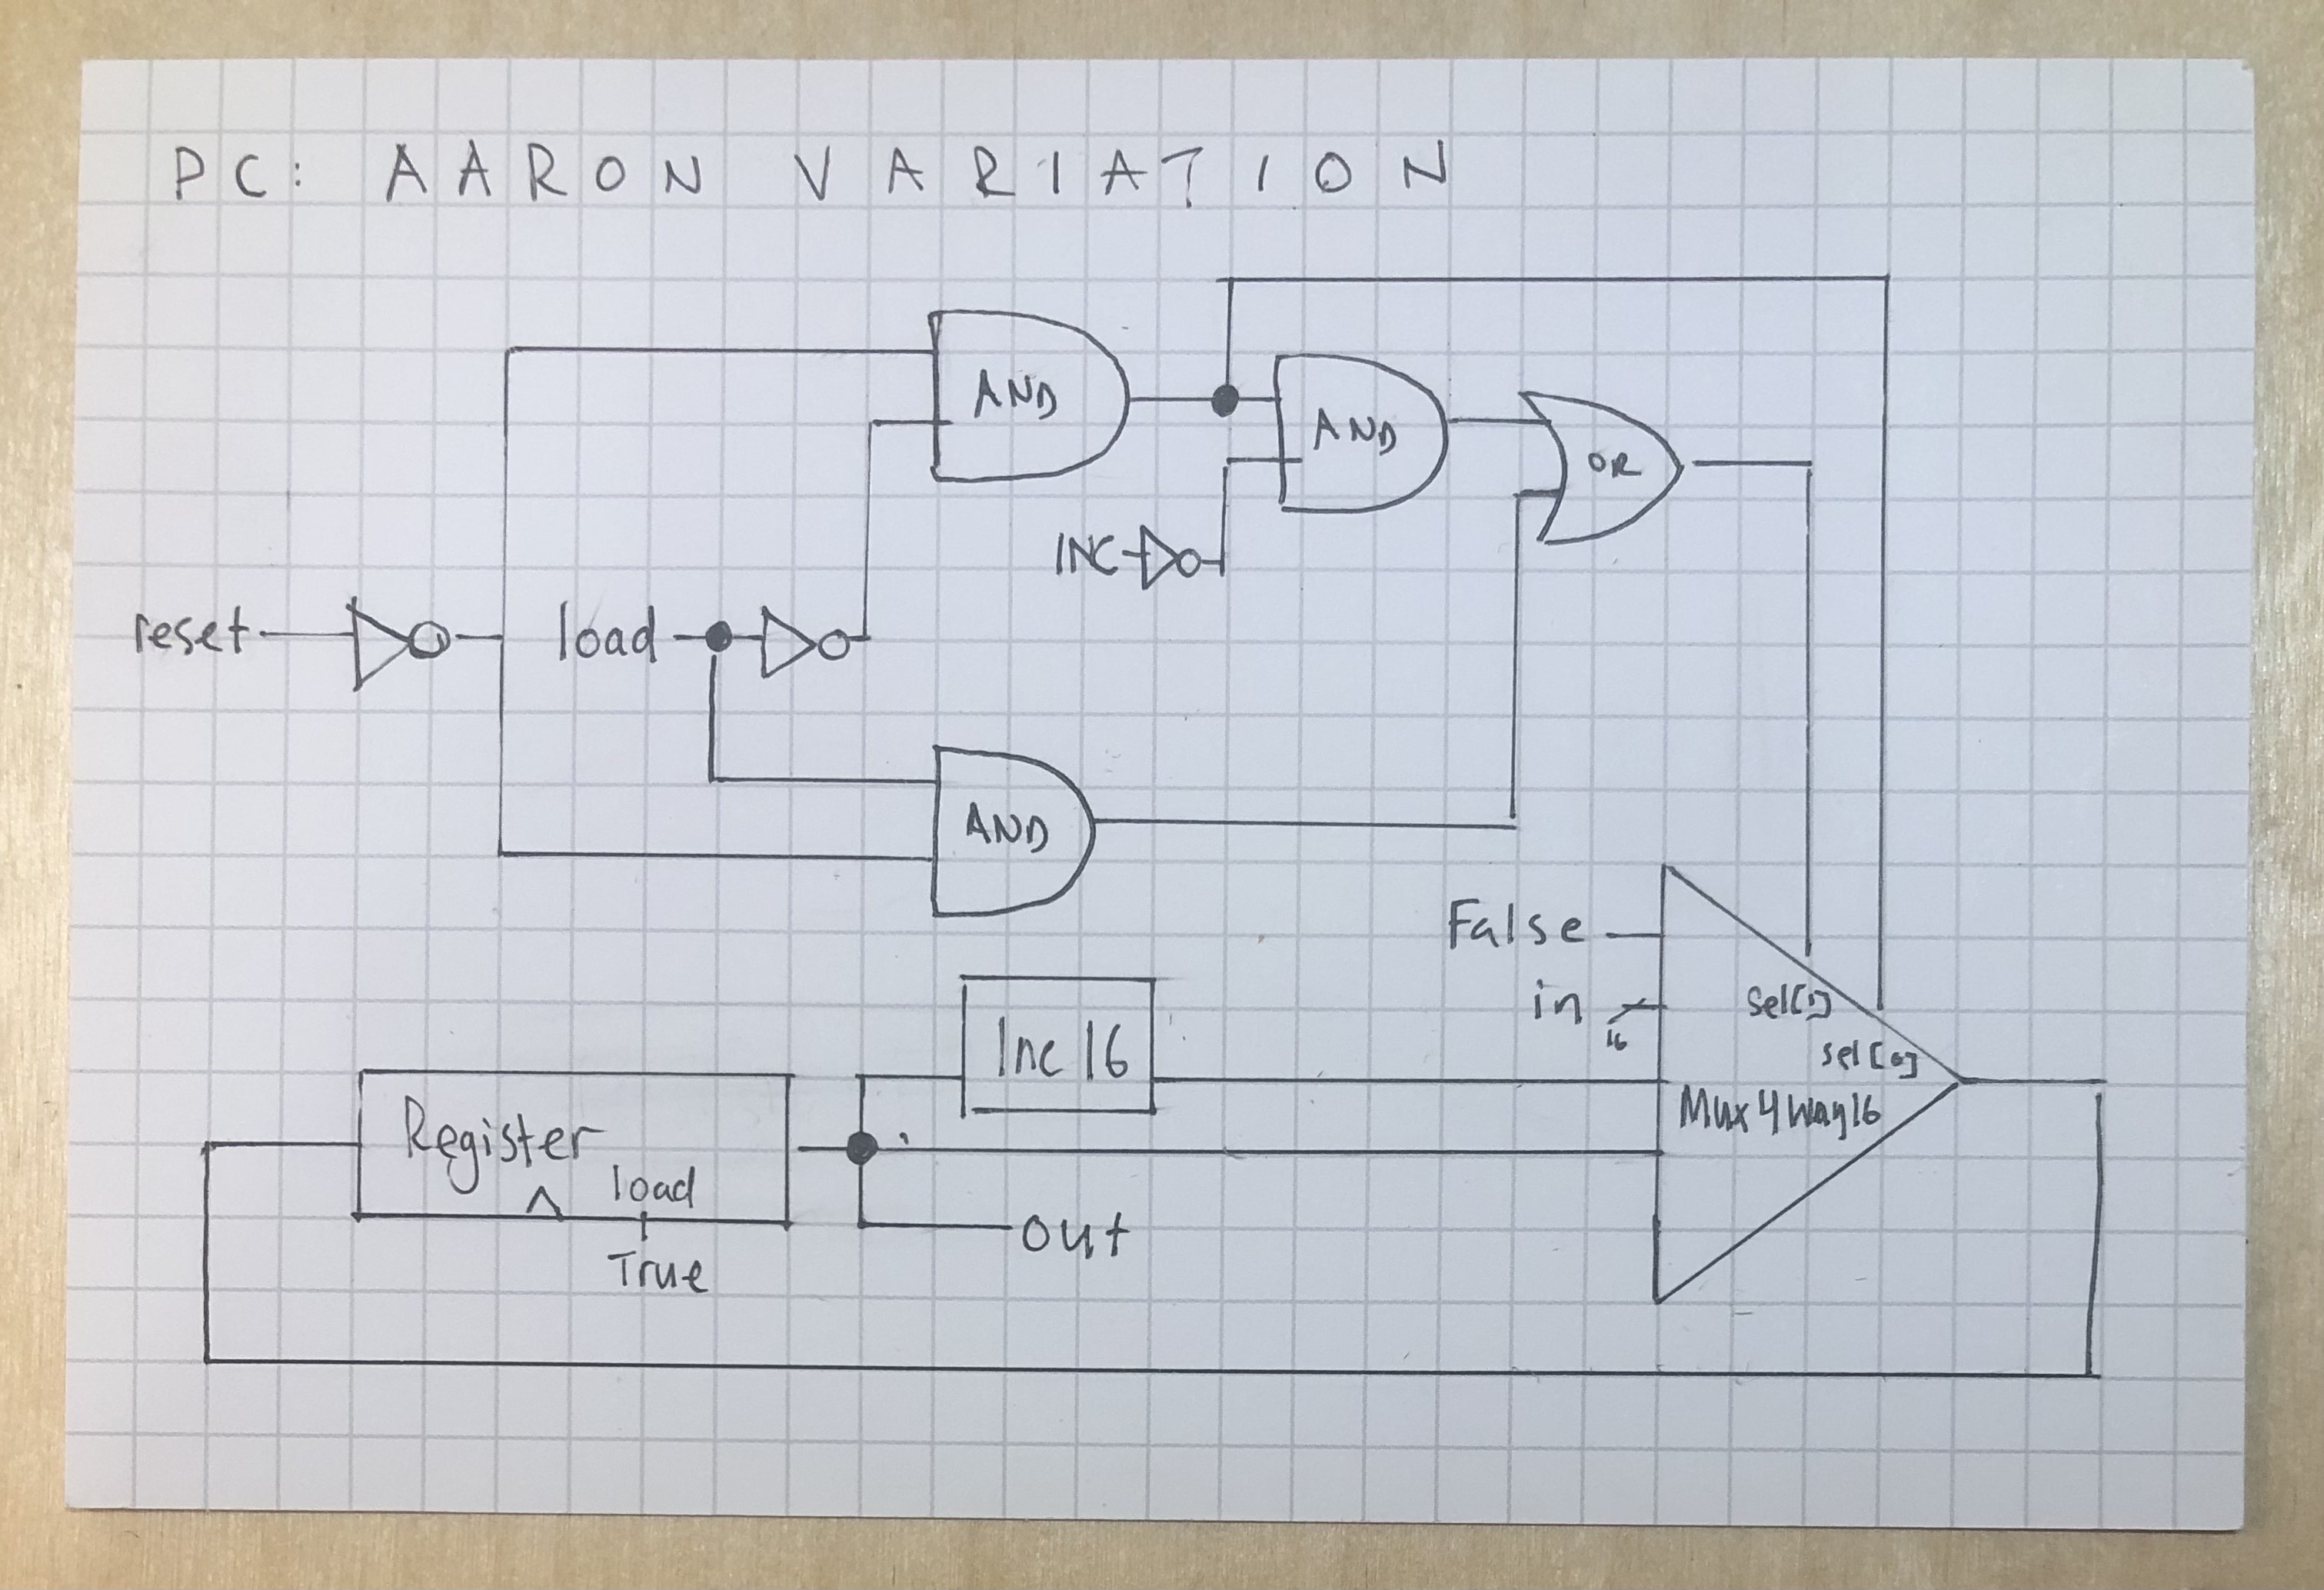 PC: AARON VARIATION
AND
AND
OR
INC
reset
load
AND
False
in
16
sel[1]
sel[0]
Inc 16
Mux4Way16
Register
load
True
out